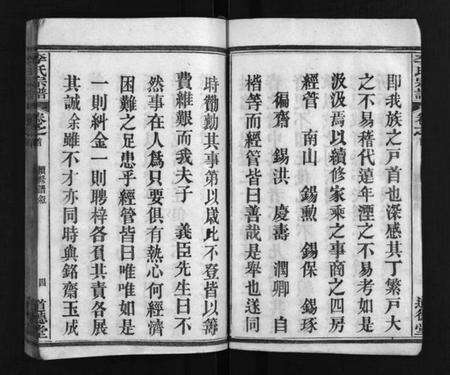 即我族之戸首也深感其丁繁戸大
之不易稽代遠年湮之不易考如是
汲汲焉以續修家乘之事商之四房
經管 南山 錫勲 錫保 錫琢
徧齋 錫洪 慶壽 潤卿 自
楷等而經管皆曰善哉是舉也遂同
時勸勷其事第以歲比不登皆以籌
費維艱而我夫子 義臣先生曰不
然事在人為只要俱有熱心何經濟
困難之足患乎經管皆曰唯唯如是
一則糾金一則聘梓各負其責各展
其誠余雖不才亦同時與銘齋玉成
李氏宗譜 卷之首 續修譜叙 四 道德堂